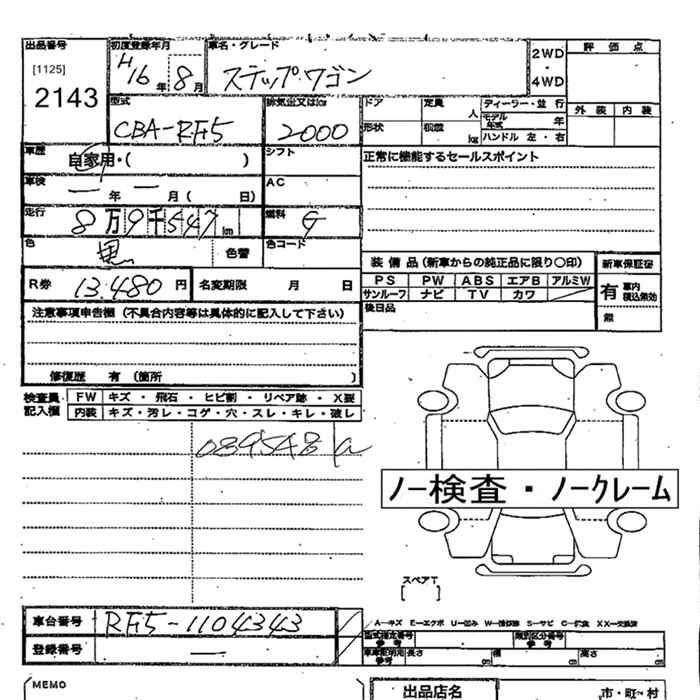 出品番号 初度登録年月 車名・グレード
[1125]
2143
H16年 8月 ステップワゴン
2WD
・
4WD
評価点
外装 内装
型式 排気量又はkm ドア 定員 人 ディーラー・並行
CBA-RF5 2000
形状 積載 kg モデル年式 年
ハンドル 左・右
車歴 自家用・( ) シフト
正常に機能するセールスポイント
車検 ー 年 ー 月( 日) AC
走行 8万9千547km 燃料 G
色 黒 色替 色コード
装備品(新車からの純正品に限り〇印) 新車保証書
PS PW ABS エアB アルミW
サンルーフ ナビ TV カワ
有 車内積込無効
無
R券 13.480円 名変期限 月 日
後日品
注意事項申告欄(不具合内容等は具体的に記入して下さい)
修復歴 有(箇所 )
検査員記入欄
FW キズ・飛石・ヒビ割・リペア跡・X要
内装 キズ・汚レ・コゲ・穴・スレ・キレ・破レ
089548
ノー検査・ノークレーム
スペアT
[ ]
車台番号 RF5-1104343
登録番号 ー
A-キズ E-エクボ U-凹み W-補修跡 S-サビ C-腐食 XX-交換済
型式指定番号 参考 類別区分番号 参考
車庫証明用 参考 長さ cm 幅 cm 高さ cm
MEMO
出品店名 市・町・村